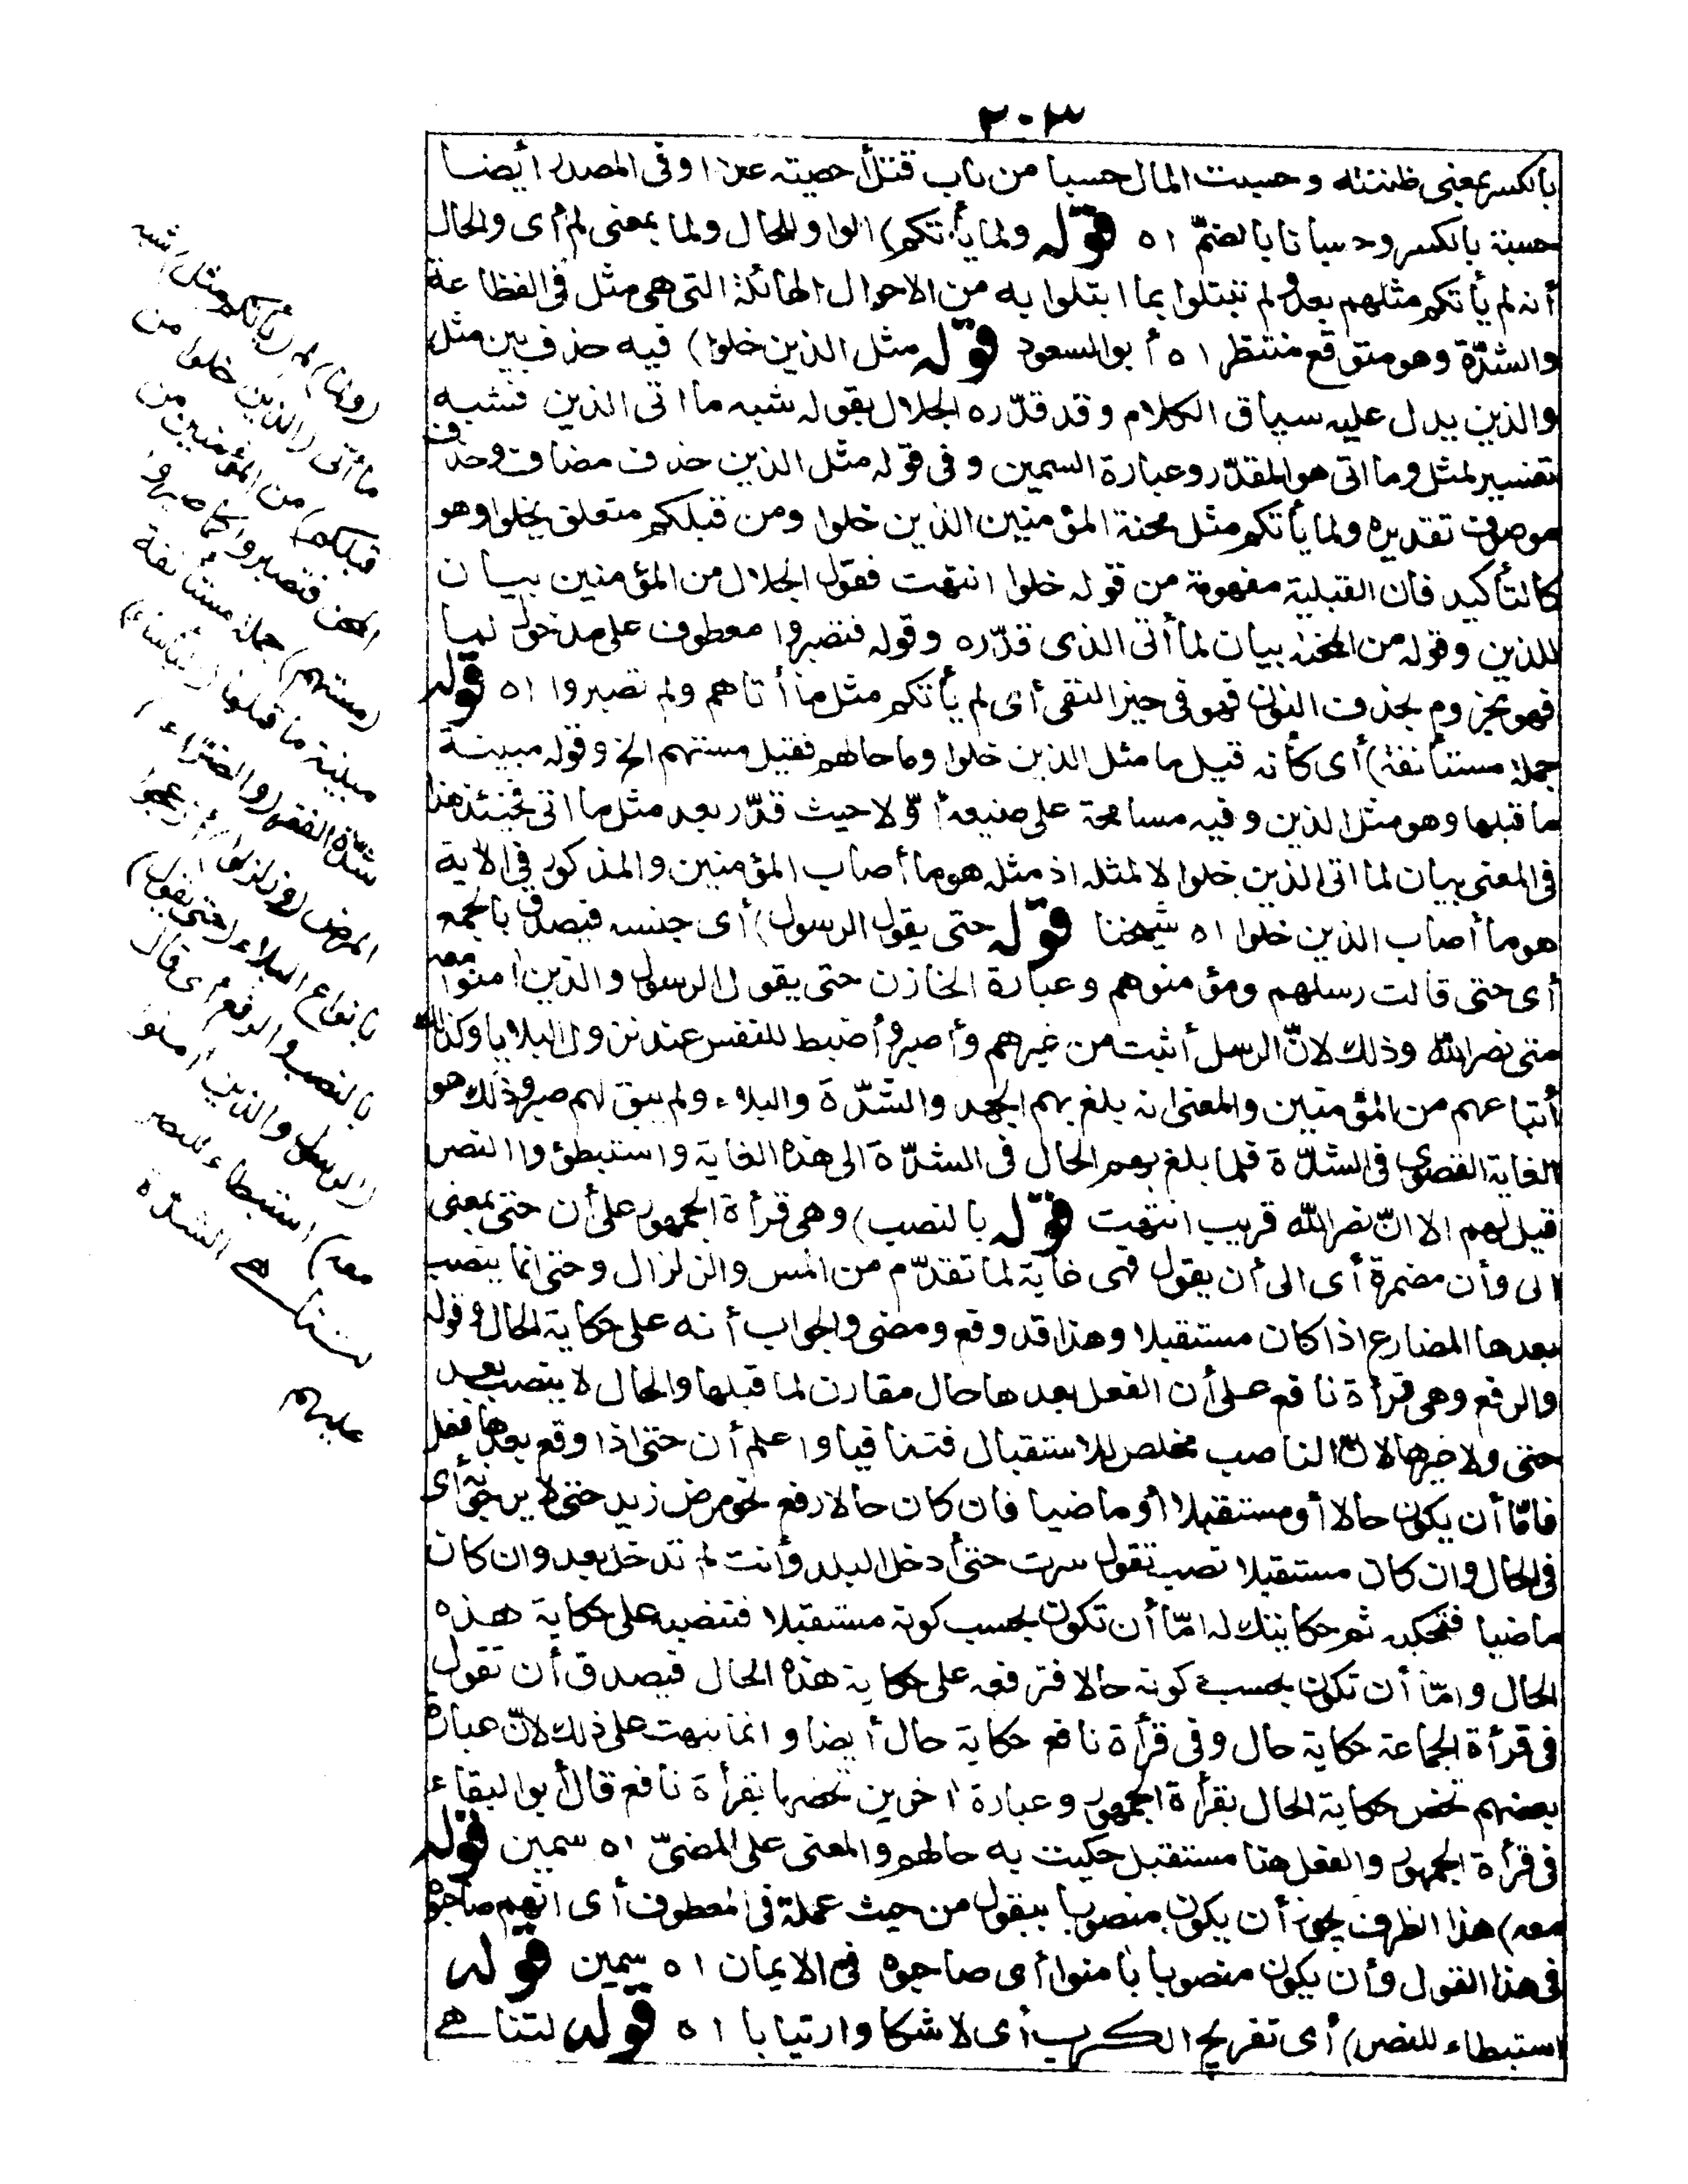 ٢٠٣
بالكسر بمعنى ظننته وحسبت المال حسبا من باب قتل أحصيته عددا وفى المصدر أيضا
حسبة بالكسر وحسبانا بالضمّ اه قوله ولما يأتكم) الواو للحال ولما بمعنى لم أى والحال
أنه لم يأتكم مثلهم بعد ولم تبتلوا بما ابتلوا به من الاحوال الهائلة التى هى مثل فى الفظاعة
والشدّة وهو متوقع منتظر اه أبو السعود قوله مثل الذين خلوا) فيه حذف بين مثل
والذين يدل عليه سياق الكلام وقد قدّره الجلال بقوله شبه ما اتى الذين فشبه
تفسير لمثل وما اتى هو المقدّر وعبارة السمين وفى قوله مثل الذين حذف مضاف وحذف
موصوف تقديره ولما يأتكم مثل محنة المؤمنين الذين خلوا ومن قبلكم متعلق بخلوا وهو
كالتأكيد فان القبلية مفهومة من قوله خلوا انتهت فقول الجلال من المؤمنين بيان
للذين وقوله من المحن بيان لما أتى الذى قدّره وقوله فتصبروا معطوف على مدخول لما
فهو مجزوم بحذف النون فهو فى حيز النفى أى لم يأتكم مثل ما أتاهم ولم تصبروا اه قوله
جملة مستأنفة) أى كأنه قيل ما مثل الذين خلوا وما حالهم فقيل مستهم الخ وقوله مبينة
ما قبلها وهو مثل الذين وفيه مسامحة على صنيعه أوّلا حيث قدّر بعد مثل ما اتى فحينئذ هذا
فى المعنى بيان لما اتى الذين خلوا لا لمثله اذ مثله هو ما أصاب المؤمنين والمذكور فى الآية
هو ما أصاب الذين خلوا اه شيخنا قوله حتى يقول الرسول) أى جنسه فيصدق بالجمع
أى حتى قالت رسلهم ومؤمنوهم وعبارة الخازن حتى يقول الرسول والذين امنوا معه
متى نصر الله وذلك لانّ الرسل أثبت من غيرهم وأصبر وأضبط للنفس عند نزول البلايا وكذلك
أتباعهم من المؤمنين والمعنى انه بلغ بهم الجهد والشدّة والبلاء ولم يبق لهم صبر وذلك هو
الغاية القصوى فى الشدّة فلما بلغ بهم الحال فى الشدّة الى هذه الغاية واستبطؤوا النصر
قيل لهم الا انّ نصر الله قريب انتهت قوله بالنصب) وهى قرأة الجمهور على أن حتى بمعنى
الى وأن مضمرة أى الى أن يقول فهى غاية لما تقدّم من المس والزلزال وحتى انما ينصب
بعدها المضارع اذا كان مستقبلا وهذا قد وقع ومضى والجواب أنه على حكاية الحال وقوله
والرفع وهى قرأة نافع على أن الفعل بعدها حال مقارن لما قبلها والحال لا ينصب بعد
حتى ولا غيرها لانّ الناصب مخلص للاستقبال فتنافيا واعلم أن حتى اذا وقع بعدها فعل
فامّا أن يكون حالا أو مستقبلا أو ماضيا فان كان حالا رفع نحو مرض زيد حتى لا يرجونه أى
فى الحال وان كان مستقبلا نصب تقول سرت حتى أدخل البلد وأنت لم تدخل بعد وان كان
ماضيا فتحكيه ثم حكايتك له امّا أن تكون بحسب كونه مستقبلا فتنصبه على حكاية هذه
الحال وامّا أن تكون بحسب كونه حالا فترفعه على حكاية هذه الحال فيصدق أن تقول
فى قرأة الجماعة حكاية حال وفى قرأة نافع حكاية حال أيضا وانما نبهت على ذلك لانّ عبارة
بعضهم تخص حكاية الحال بقرأة الجمهور وعبارة اخرين تخصها بقرأة نافع قال أبو البقاء
فى قرأة الجمهور والفعل هنا مستقبل حكيت به حالهم والمعنى على المضىّ اه سمين قوله
معه) هذا الظرف يجوز أن يكون منصوبا بيقول من حيث عمله فى المعطوف أى انهم صاحبوه
فى هذا القول وأن يكون منصوبا بامنوا أى صاحبوه فى الايمان اه سمين قوله
استبطاء للنصر) أى تفريج الكرب أى لا شكا وارتيابا اه قوله لتناهى
(ولما) لم (يأتكم مثل) شبه
ما أتى (الذين خلوا من
قبلكم) من المؤمنين من
المحن فتصبروا كما صبروا
(مستهم) جملة مستأنفة
مبينة ما قبلها (البأساء)
شدّة الفقر (والضرّاء)
المرض (وزلزلوا) أزعجوا
بانواع البلاء (حتى يقول)
بالنصب والرفع أى قال
(الرسول والذين امنوا
معه) استبطاء للنصر
لتناهى الشدّة
عليهم